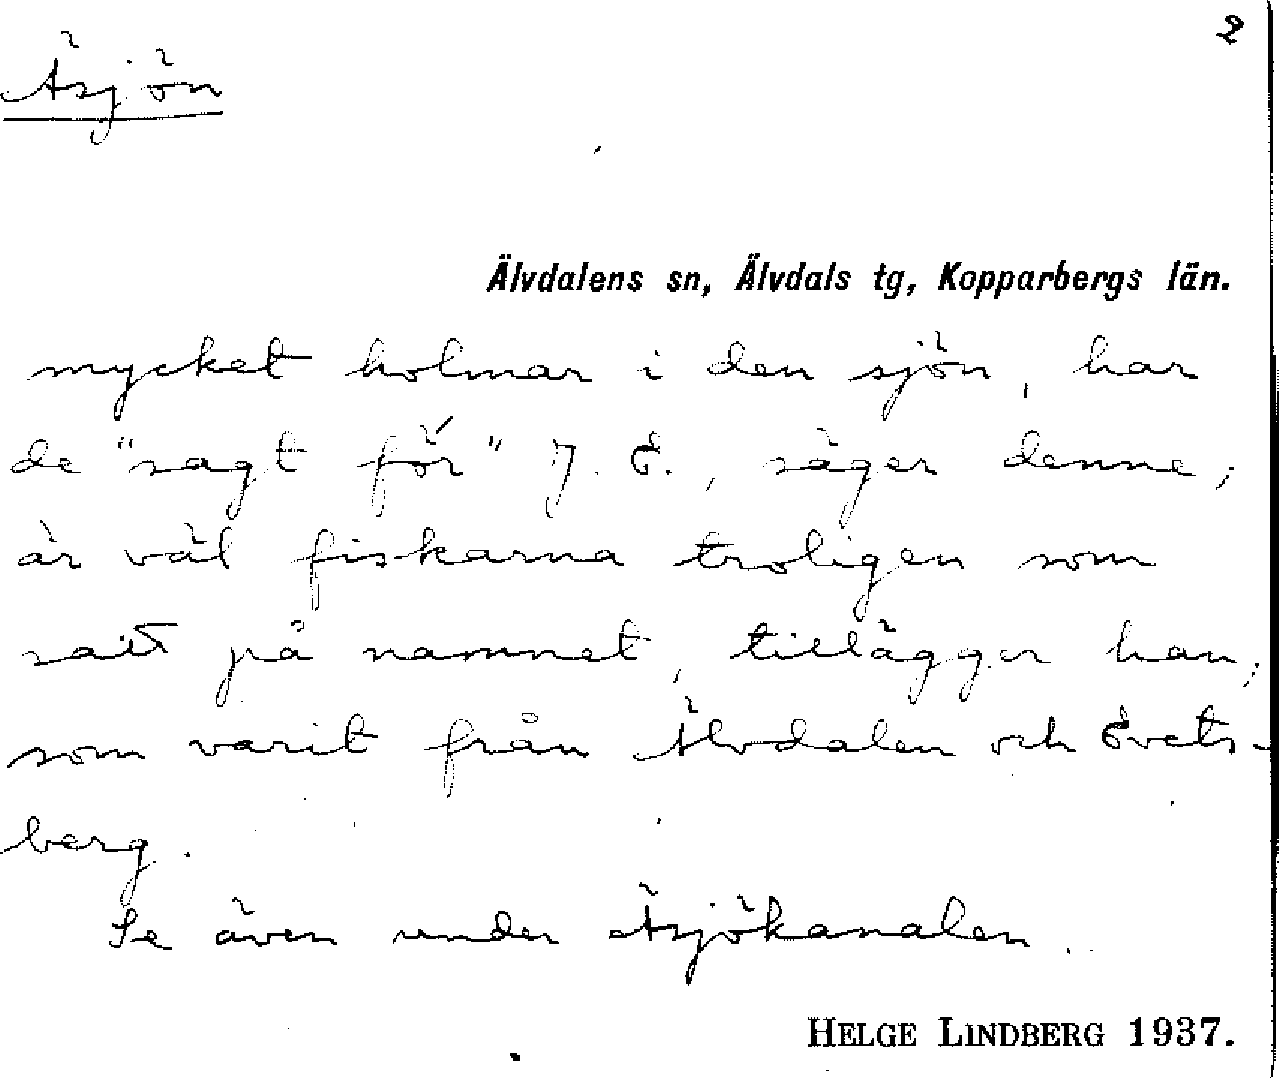 2
Äsjön
Älvdalens sn, Älvdals tg, Kopparbergs län.
mycket holmar i den sjön, har
de "sagt för" J. E., säger denne;
är väl fiskarna troligen som
satt på namnet, tillägger han,
som varit från Älvdalen och Evets-
berg.
Se även under Äsjökanalen.
HELGE LINDBERG 1937.